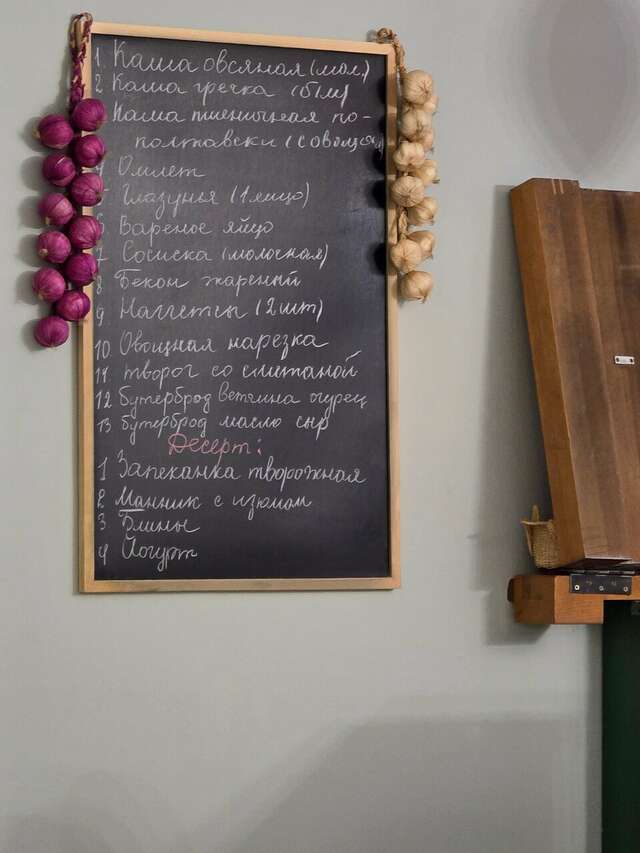 1. Каша овсяная (мол.)
2 Каша гречка
Каша пшеничная по-
полтавски (с овощ
4 Омлет
Глазунья (1 яйцо)
6 Вареное яйцо
7 Сосиска (молочная)
8 Бекон жареный
9 Наггетсы (2шт)
10 Овощная нарезка
11 творог со сметаной
12 бутерброд ветчина огурец
13 бутерброд масло сыр
Десерт:
1 Запеканка творожная
2 Манник с изюмом
3 Блины
4 Йогурт